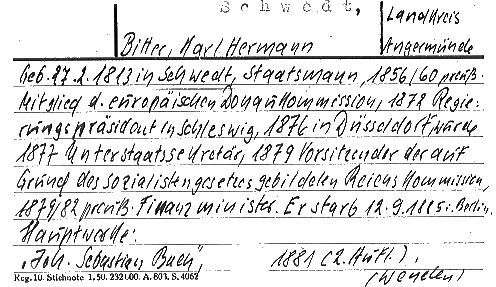 Schwedt,
Landkreis
Angermünde
Bitter, Karl Hermann
Geb. 27.2.1813 in Schwedt, Staatsmann, 1856/60 preuß.
Mitglied d. europäischen Donaukommission, 1872 Regie-
rungspräsident in Schleswig, 1876 in Düsseldorf, wurde
1877 Unterstaatssekretär, 1879 Vorsitzender der auf
Grund des Sozialistengesetzes gebildeten Reichskommission,
1879/82 preuß. Finanzminister. Er starb 12.9.1885 i. Berlin.
Hauptwerke:
"Joh. Sebastian Bach", 1881 (2. Aufl.).
Reg. 10. Stichnote 1, 50. 232000. A. 803. S. 4062